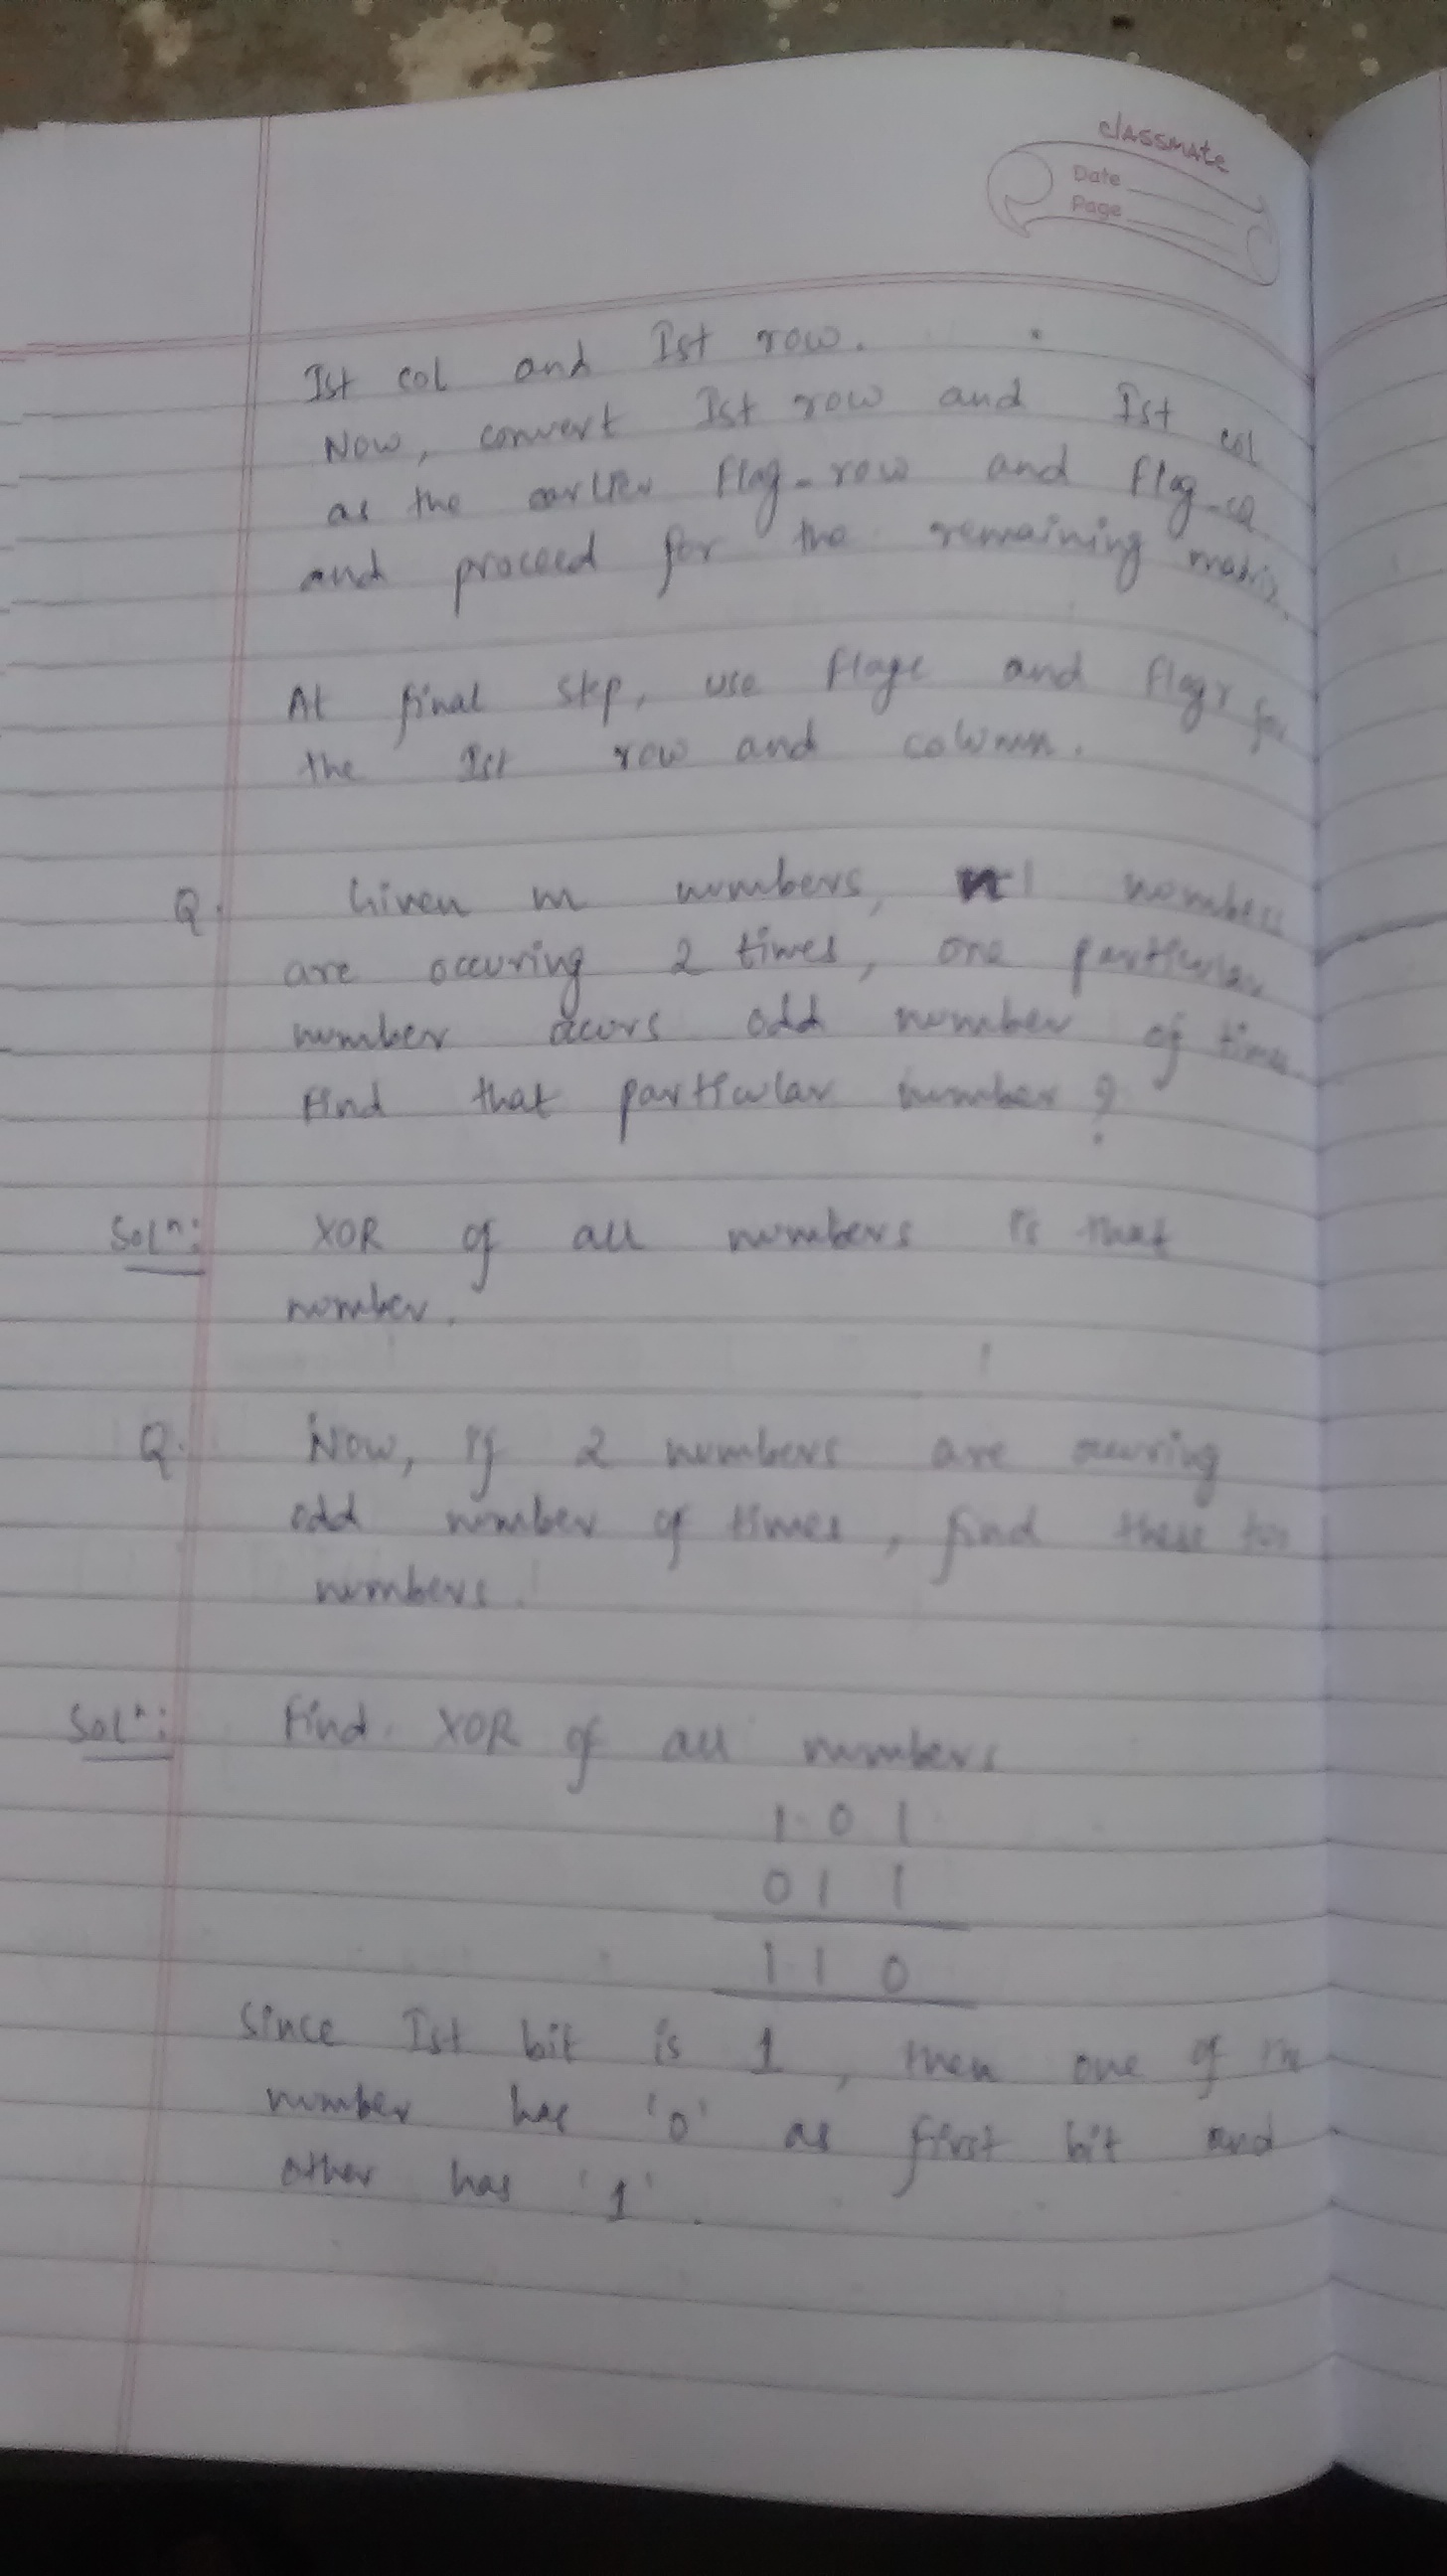 classmate
Date
Page
Ist col and Ist row.
Now, convert Ist row and Ist col
as the earlier flag-row and flag-co
and proceed for the remaining matrix.
At final step, use flagc and flagr for
the Ist row and column.
Q. Given m numbers, numbers
are occuring 2 times, one particular
number occurs odd number of times
Find that particular number ?
Soln: XOR of all numbers is that
number.
Q. Now, if 2 numbers are occuring
odd number of times, find these two
numbers.
Soln: Find XOR of all numbers
1 0 1
0 1 1
1 1 0
Since Ist bit is 1, then one of the
number has '0' as first bit and
other has '1'.